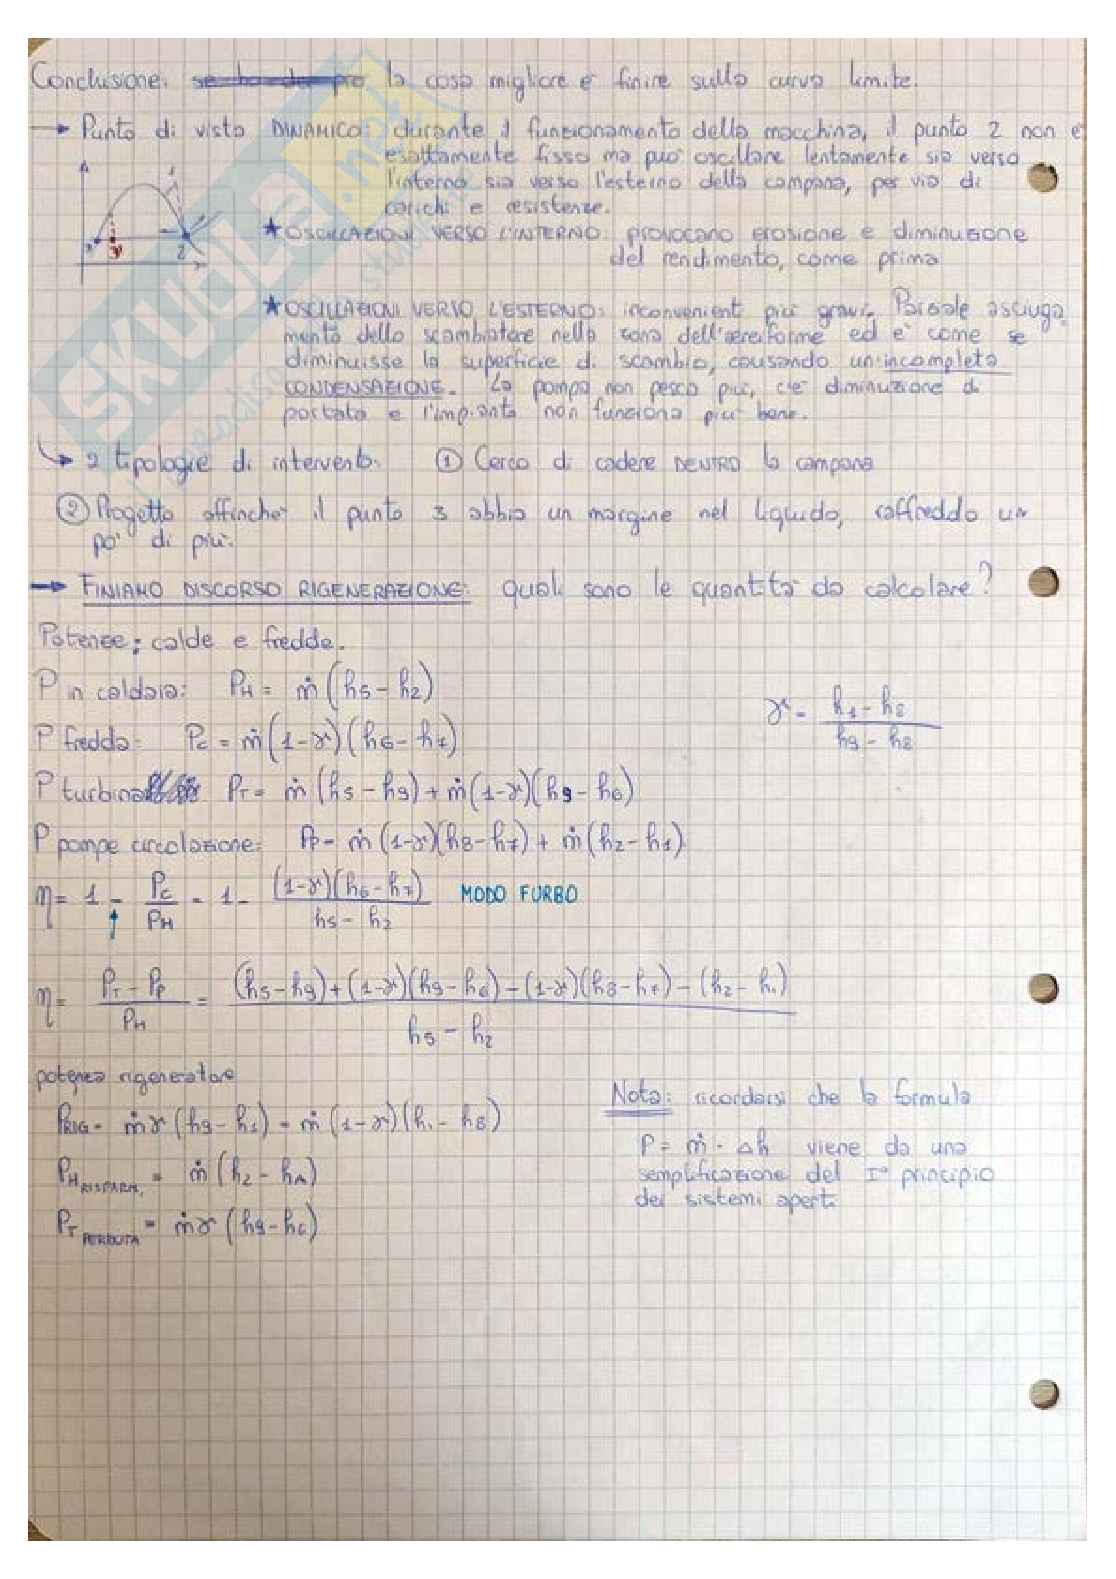 Conclusione: la cosa migliore è finire sulla curva limite.
→ Punto di vista DINAMICO: durante il funzionamento della macchina, il punto 2 non è
esattamente fisso ma può oscillare lentamente sia verso
l'interno sia verso l'esterno della campana, per via di
carichi e resistenze.
★ OSCILLAZIONI VERSO L'INTERNO: provocano erosione e diminuzione
del rendimento, come prima
2
★ OSCILLAZIONI VERSO L'ESTERNO: inconvenienti più gravi. Parziale asciuga
mento dello scambiatore nella zona dell'aeriforme ed è come se
diminuisse la superficie di scambio, causando un'incompleta
CONDENSAZIONE. La pompa non pesca più, c'è diminuzione di
portata e l'impianto non funziona più bene.
↳ 2 tipologie di intervento: ① Cerco di cadere DENTRO la campana
② Progetto affinché il punto 3 abbia un margine nel liquido, raffreddo un
po' di più.
→ FINIAMO DISCORSO RIGENERAZIONE: quali sono le quantità da calcolare?
Potenze: calde e fredde.
P in caldaia: PH = ṁ(h5 - h2)
γ = (h1 - h8) / (h9 - h8)
P fredda: Pc = ṁ(1-γ)(h6 - h7)
P turbina PT = ṁ(h5 - h9) + ṁ(1-γ)(h9 - h6)
P pompe circolazione: Pp = ṁ(1-γ)(h8 - h7) + ṁ(h2 - h1)
η = 1 - Pc/PH = 1 - (1-γ)(h6 - h7) / (h5 - h2) MODO FURBO
η = (PT - Pp) / PH = ((h5 - h9) + (1-γ)(h9 - h6) - (1-γ)(h8 - h7) - (h2 - h1)) / (h5 - h2)
potenza rigeneratore
PRIG = ṁγ(h9 - h1) = ṁ(1-γ)(h1 - h8)
Nota: ricordarsi che la formula
P = ṁ · Δh viene da una
semplificazione del I° principio
dei sistemi aperti
PH RISPARM. = ṁ(h2 - hA)
PT PERDUTA = ṁγ(h9 - h6)
SKUOLA.net